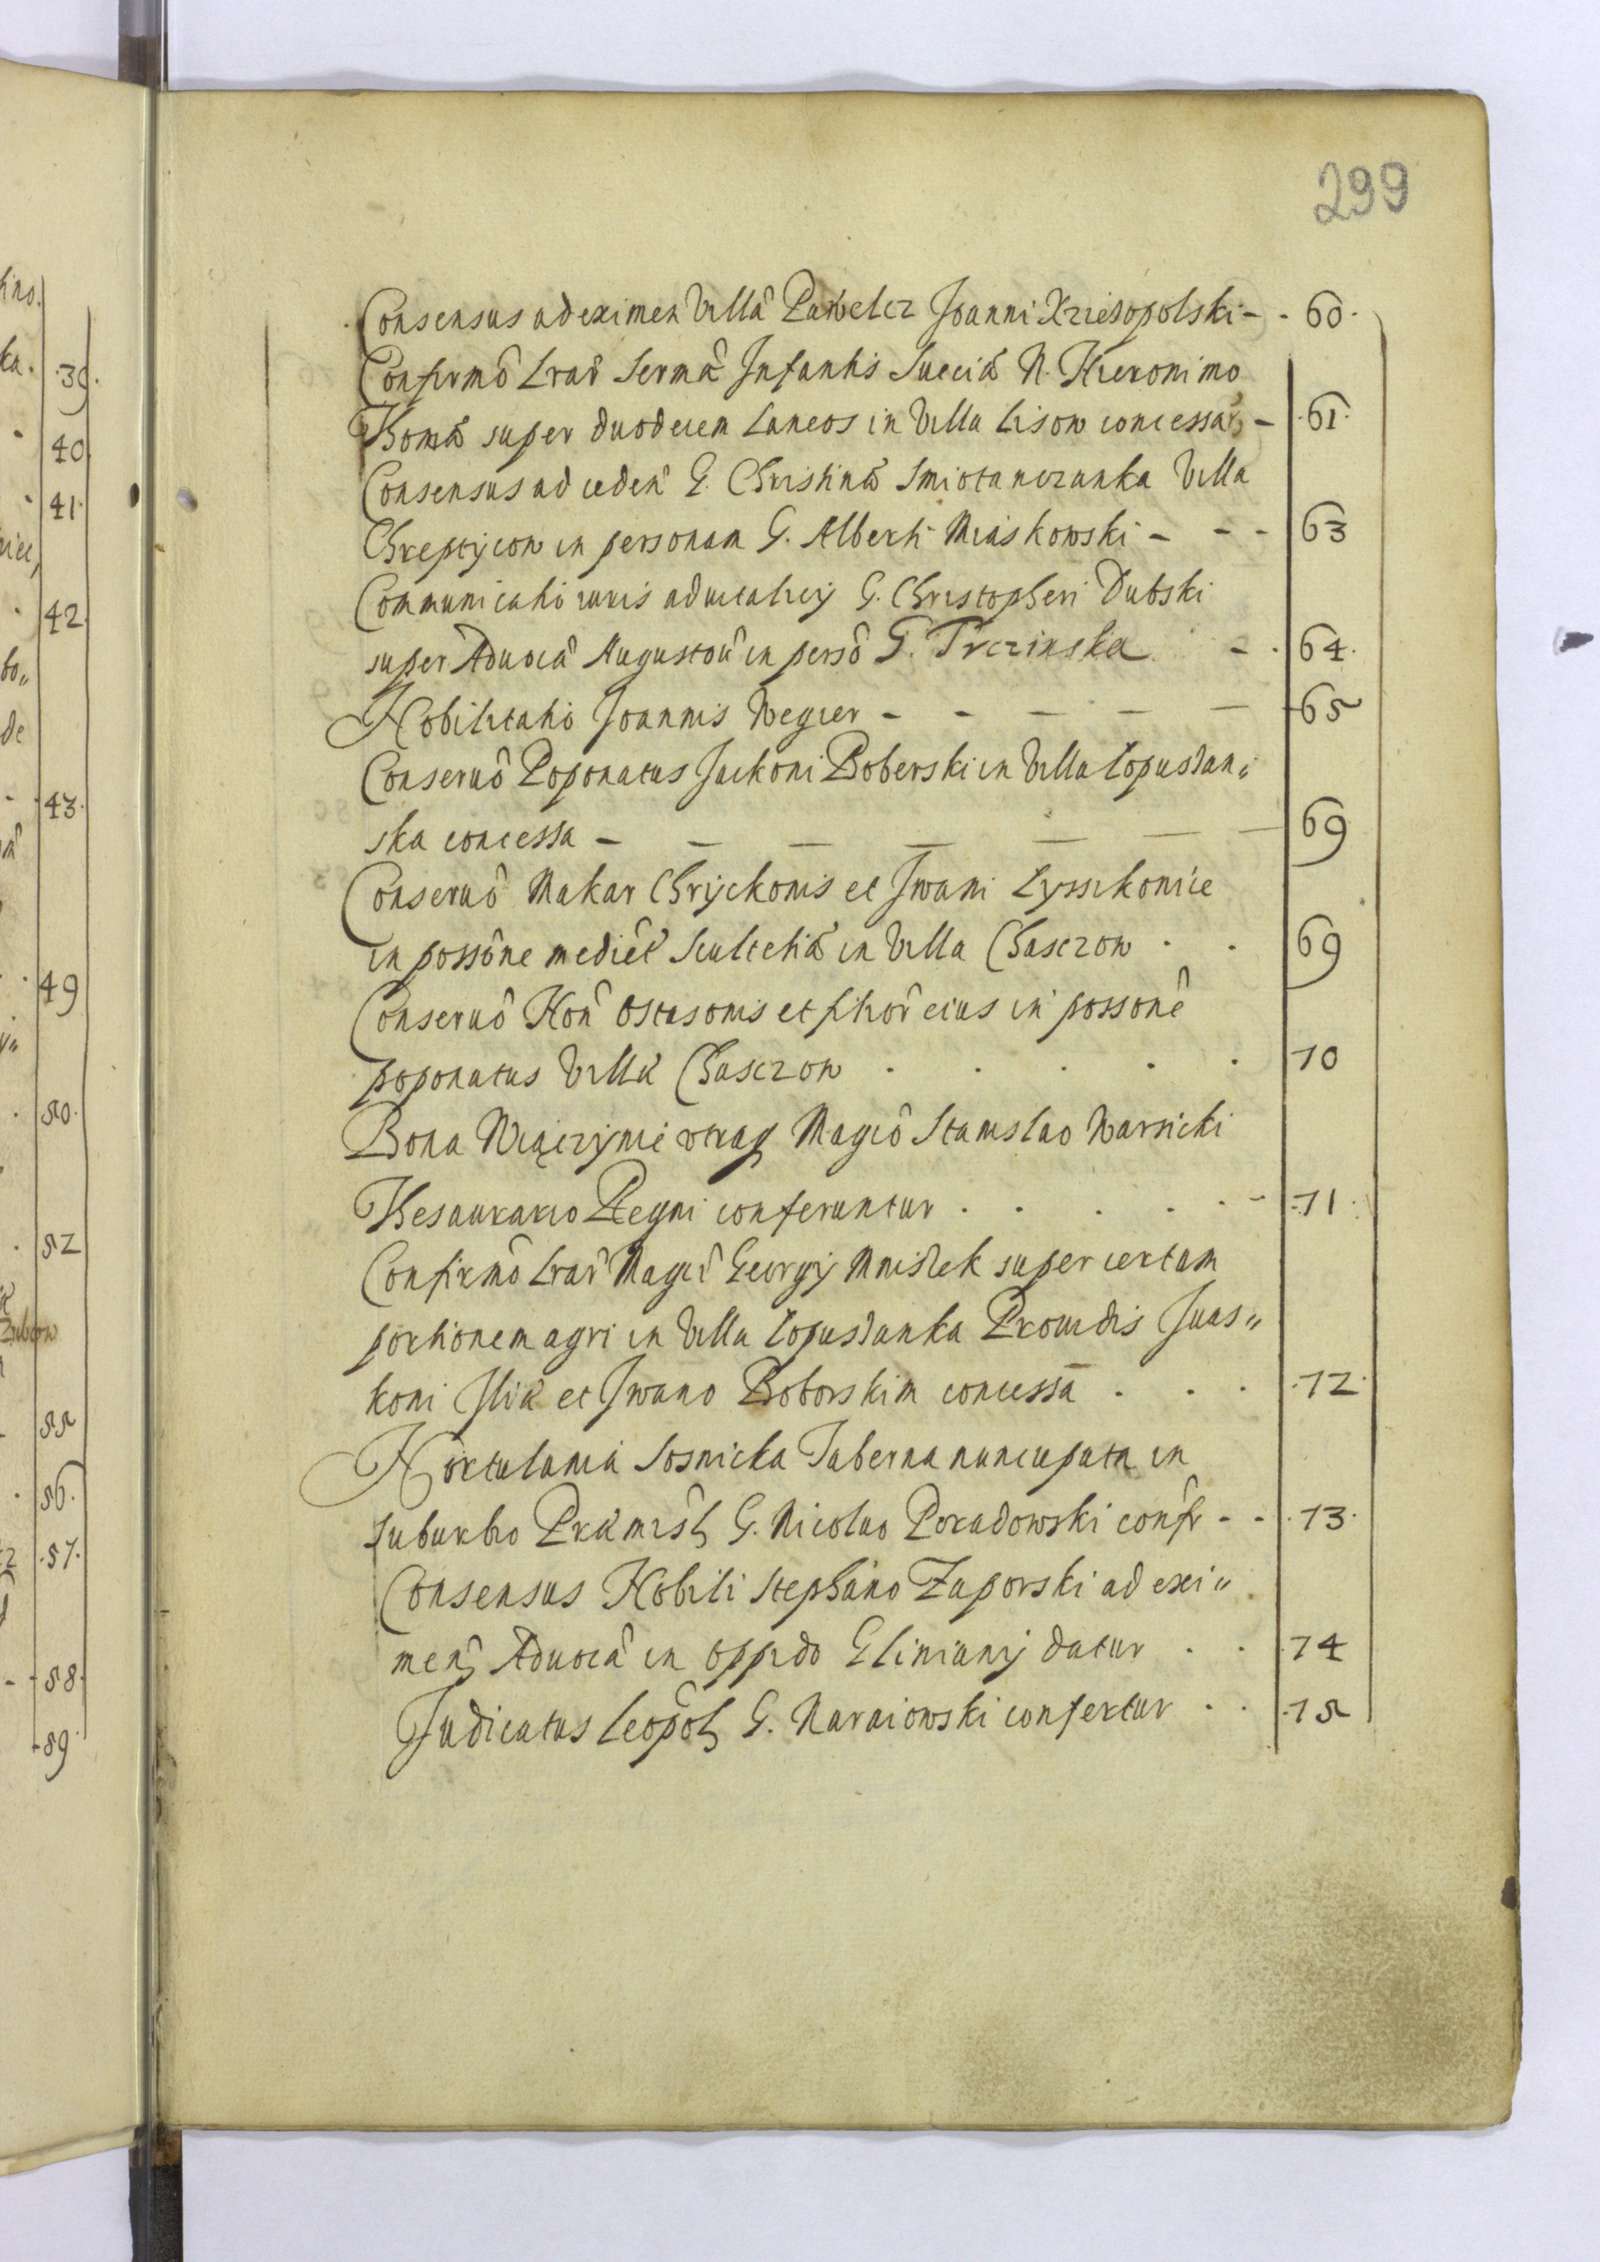 299
Consensus ad eximen Villa Pawelcz Joanni Krziesopolski - - 60.
Confirmo Lrar Serma Infantis Sueciæ N. Hieronimo
Bomæ super duodecem Laneos in Villa Lison concessar - .61.
Consensus ad ceden G. Christinæ Smiotanczanka Villa
Chreptycow in personam G. Alberti Miaskowski - - - 63
Communicatio iuris aduitalicij G. Christopheri Dubski
super Aduoca Augustou in perso G. Trczinska - . 64.
Nobilitatio Joannis Wegier - - - - - 65
Conseruo Poponatus Jackoni Boberski in Villa Lopusdan„
ska concessa - - - - - - - 69
Conseruo Makar Chryckonis et Jwani Lyssckonice
in possone mediet Scultetiæ in Villa Chasczow . . 69
Conseruo Hon Ostasonis et filior eius in possone
poponatus Villæ Chasczow . . . . . 70
Bona Wiączynie utraq Magco Stanislao Warsicki
Thesaurario Regni conferuntur . . . . . - .71.
Confirmo Lrar Magci Georgij Mnissek super certam
portionem agri in Villa Lopusdanka Prouidis Juas„
koni Iliæ et Jwano Boborskim concessa . . . .72.
Hortulania Sosnicka Taberna nuncupata in
suburbio Præmisl G. Nicolao Poradowski confr - - .73.
Consensus Nobili Stephano Zaporski ad exi„
men Aduoca in Oppido Gliniany datur . . .74
Judicatus Leopol G. Naraiowski confertur . . .75
39.
40
41.
42.
43.
49
50.
52
55
56.
57.
58.
59